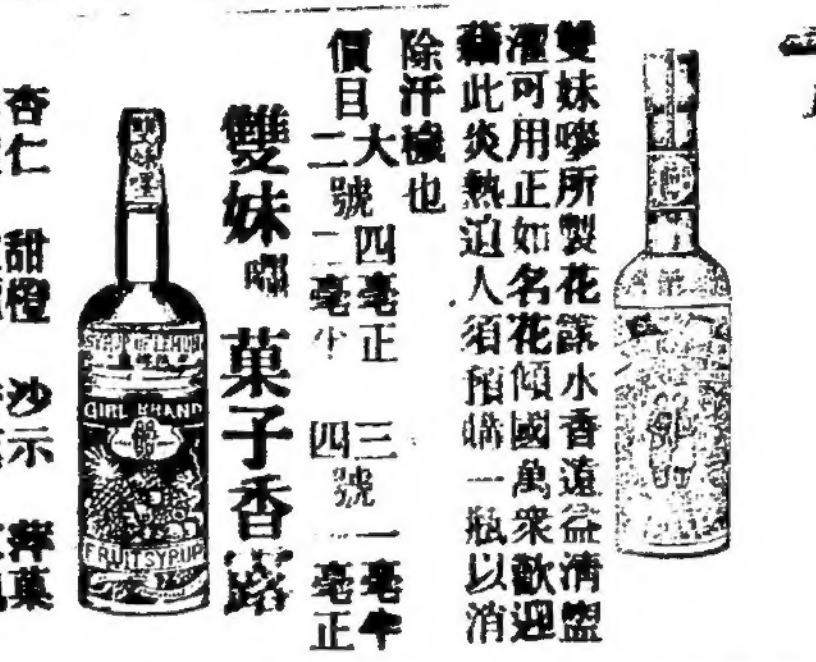 雙妹嘜所製花露水香遠益清盥
濯可用正如名花傾國萬衆歡迎
藉此炎熱迫人須預購一瓶以消
除汗穢也
價目 大號 四毫正 三號 一毫半
二號 二毫半 四號 一毫正
雙妹嘜 菓子香露
雙妹嘜
SYRUP OF LEMON
GIRL BRAND
FRUIT SYRUP
杏仁 甜橙 沙示 蘋菓